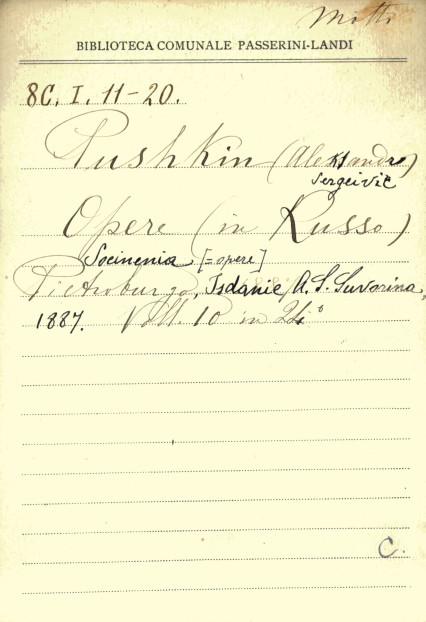 Mitti
BIBLIOTECA COMUNALE PASSERINI-LANDI
8C. I. 11-20.
Pushkin (Aleksandro)
Sergeivič
Opere (in Russo)
Socinenia [= opere]
Pietroburgo, Isdanie A. S. Suvorina,
1887. Voll. 10 in 24°
C.